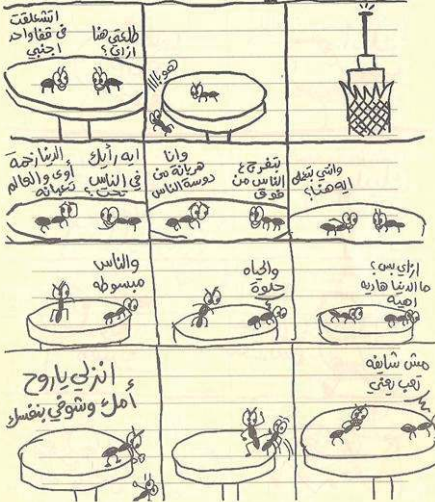 هوباااا
طلعتي هنا
ازاي؟
اتشعلقت
في قفا واحد
اجنبي
وانتي بتعملي
ايه هنا؟
بتفرج ع
الناس من
فوق
وانا
هربانة من
دوسة الناس
ايه رأيك
في الناس
تحت؟
الدنيا زحمة
أوي والعالم
تعبانه
ازاي بس؟
ما الدنيا هاديه
اهيه
والحياه
حلوة
والناس
مبسوطه
مش شايفه
تعب يعني
انزلي ياروح
أمك وشوفي بنفسك